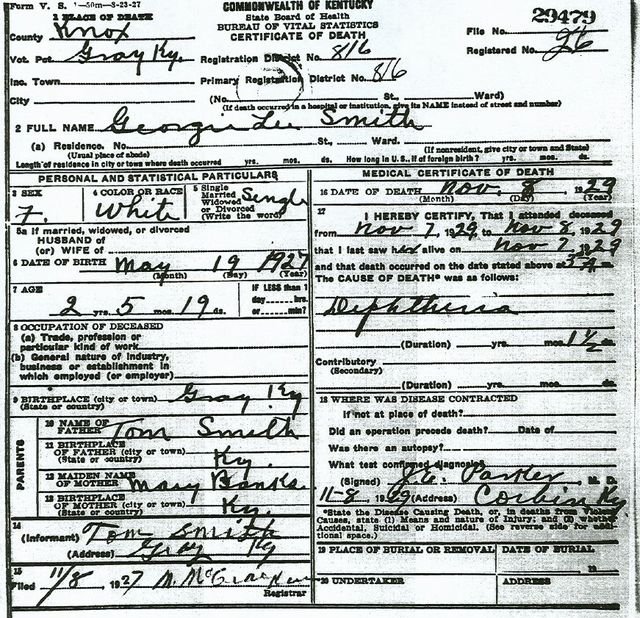 Form V. S. 1—50m—8-23-27
COMMONWEALTH OF KENTUCKY
State Board of Health
BUREAU OF VITAL STATISTICS
CERTIFICATE OF DEATH
29479
1 PLACE OF DEATH
County Knox
File No.
Vot. Pct. Gray Ky.
Registration District No. 816
Registered No. 26
Inc. Town
Primary Registration District No. 816
City
(No. St., Ward)
(If death occurred in a hospital or institution, give its NAME instead of street and number)
2 FULL NAME Georgie Lee Smith
(a) Residence. No. St., Ward.
(Usual place of abode) (If nonresident, give city or town and State)
Length of residence in city or town where death occurred yrs. mos. ds. How long in U. S., if of foreign birth? yrs. mos. ds.
PERSONAL AND STATISTICAL PARTICULARS
3 SEX
F.
4 COLOR OR RACE
White
5 Single
Married
Widowed
or Divorced
(Write the word)
Single
5a If married, widowed, or divorced
HUSBAND of
(or) WIFE of
6 DATE OF BIRTH May 19 1927
(Month) (Day) (Year)
7 AGE
2 yrs. 5 mos. 19 ds.
IF LESS than 1
day hrs.
or min?
8 OCCUPATION OF DECEASED
(a) Trade, profession or
particular kind of work
(b) General nature of industry,
business or establishment in
which employed (or employer)
9 BIRTHPLACE (city or town) Gray Ky
(State or country)
PARENTS
10 NAME OF
FATHER Tom Smith
11 BIRTHPLACE
OF FATHER (city or town)
(State or country) Ky.
12 MAIDEN NAME
OF MOTHER Mary Banks
13 BIRTHPLACE
OF MOTHER (city or town)
(State or country) Ky.
14
(Informant) Tom Smith
(Address) Gray Ky
15
Filed 11/8, 1927 M. McCracken
Registrar
MEDICAL CERTIFICATE OF DEATH
16 DATE OF DEATH Nov. 8, 1929
(Month) (Day) (Year)
17
I HEREBY CERTIFY, That I attended deceased
from Nov 7, 1929, to Nov 8, 1929
that I last saw her alive on Nov 7, 1929
and that death occurred on the date stated above at 3
The CAUSE OF DEATH* was as follows:
Diphtheria
(Duration) yrs. mos. 1½ ds.
Contributory
(Secondary)
(Duration) yrs. mos. ds.
18 WHERE WAS DISEASE CONTRACTED
if not at place of death?
Did an operation precede death? Date of
Was there an autopsy?
What test confirmed diagnosis?
(Signed) Parker M. D.
11-8, 1929 (Address) Corbin Ky
*State the Disease Causing Death, or, in deaths from Violent
Causes, state (1) Means and nature of Injury; and (2) whether
Accidental, Suicidal or Homicidal. (See reverse side for addi-
tional space.)
19 PLACE OF BURIAL OR REMOVAL
DATE OF BURIAL
19
20 UNDERTAKER
ADDRESS